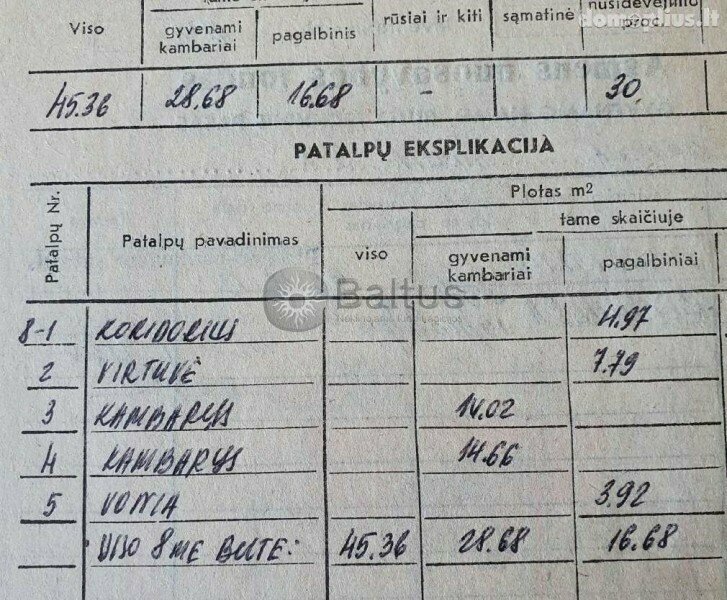 domoplius.lt
Viso gyvenami kambariai pagalbinis rūsiai ir kiti sąmatinė nusidėvėjimo proc.
45.36 28.68 16.68 - 30
PATALPŲ EKSPLIKACIJA
Patalpų Nr. Patalpų pavadinimas Plotas m2
viso tame skaičiuje
gyvenami kambariai pagalbiniai
Baltus
8-1 KORIDORIUS 4.97
2 VIRTUVĖ 7.79
3 KAMBARYS 14.02
4 KAMBARYS 14.66
5 VONIA 3.92
VISO 8ME BUTE: 45.36 28.68 16.68